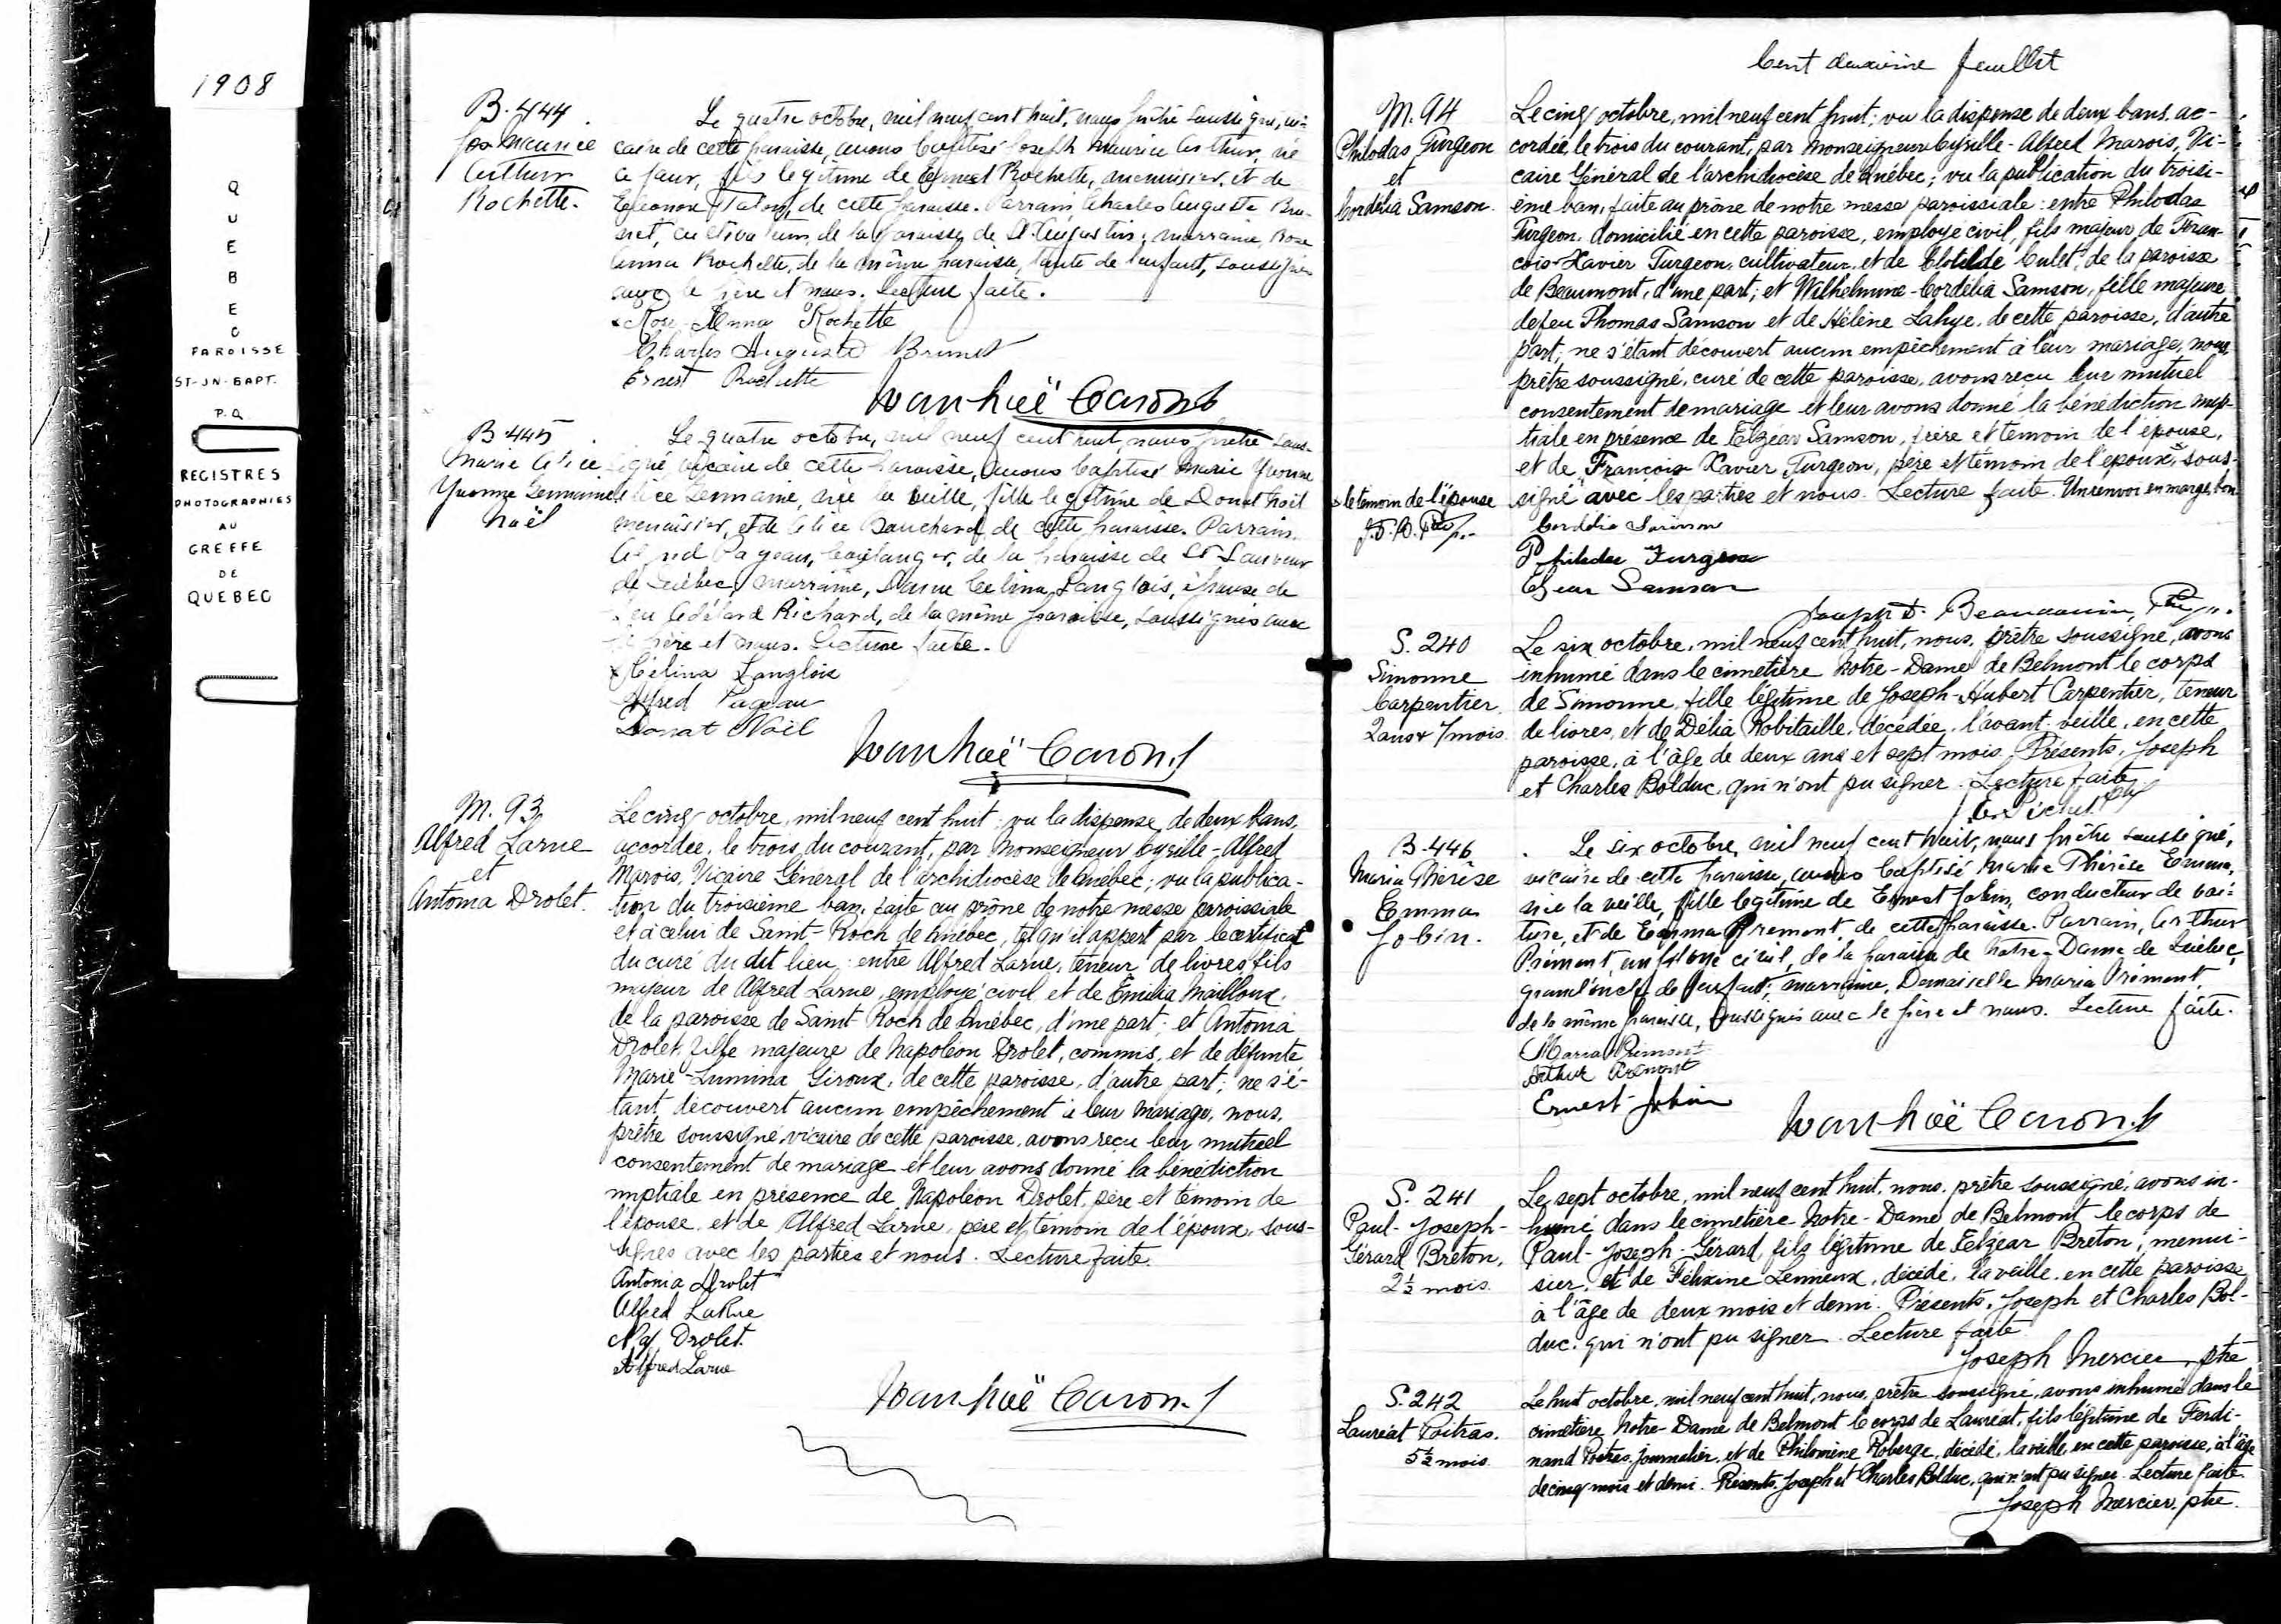 1908
QUEBEC
PAROISSE
ST-JN-BAPT.
P.Q
REGISTRES
PHOTOGRAPHIES
AU
GREFFE
DE
QUEBEC
B. 444
Jos Maurice
Arthur
Rochette.
Le quatre octobre, mil neuf cent huit, nous prêtre soussigné, vi-
caire de cette paroisse, avons baptisé Joseph Maurice Arthur, né
ce jour, fils légitime de Ernest Rochette, menuisier, et de
Eléonore de cette paroisse. Parrain Charles Auguste Bru-
net, cultivateur, de la paroisse de St. Augustin; marraine, Rose
Anna Rochette, de la même paroisse, tante de l'enfant, soussignés
avec le père et nous. Lecture faite.
Rose-Anna Rochette
Charles Auguste Brunet
Ernest Rochette
Ivanhoë Caron
B 445
Marie Alice
Yvonne Germaine
Noël
Le quatre octobre, mil neuf cent huit, nous prêtre sous-
signé vicaire de cette paroisse, avons baptisé Marie Yvonne
Alice Germaine, née la veille, fille légitime de Donat Noël
menuisier, et de Alice Bouchard de cette paroisse. Parrain,
Alfred Pageau, boulanger, de la paroisse de St Sauveur
de Québec, marraine, Dame Celina Langlois, épouse de
feu Adélard Richard, de la même paroisse, soussignés avec
le père et nous. Lecture faite.
Célina Langlois
Alfred Pageau
Donat Noël
Ivanhoë Caron
M. 93
Alfred Larue
et
Antonia Drolet.
Le cinq octobre, mil neuf cent huit: vu la dispense de deux bans,
accordée, le trois du courant, par Monseigneur Cyrille-Alfred
Marois, Vicaire Général de l'archidiocèse de Québec; vu la publica-
tion du troisième ban, faite au prône de notre messe paroissiale
et à celui de Saint-Roch de Québec, tel qu'il appert par le certificat
du curé du dit lieu: entre Alfred Larue, teneur de livres, fils
majeur de Alfred Larue, employé civil, et de Emilia Mailloux,
de la paroisse de Saint Roch de Québec, d'une part; et Antonia
Drolet, fille majeure de Napoléon Drolet, commis, et de défunte
Marie-Lumina Giroux, de cette paroisse, d'autre part; ne s'é-
tant découvert aucun empêchement à leur mariage, nous,
prêtre soussigné, vicaire de cette paroisse, avons reçu leur mutuel
consentement de mariage et leur avons donné la bénédiction
nuptiale en présence de Napoléon Drolet, père et témoin de
l'épouse, et de Alfred Larue, père et témoin de l'époux, sous-
signés avec les parties et nous. Lecture faite.
Antonia Drolet
Alfred LaRue
Nap Drolet.
Alfred Larue
Ivanhoë Caron
Cent deuxième feuillet
M. 94
Philodas Turgeon
et
Cordélia Samson.
Le cinq octobre, mil neuf cent huit; vu la dispense de deux bans, ac-
cordée, le trois du courant, par Monseigneur Cyrille-Alfred Marois, Vi-
caire Général de l'archidiocèse de Québec; vu la publication du troisi-
ème ban, faite au prône de notre messe paroissiale: entre Philodas
Turgeon, domicilié en cette paroisse, employé civil, fils majeur de Fran-
cois-Xavier Turgeon, cultivateur, et de Clotilde Culet, de la paroisse
de Beaumont, d'une part; et Wilhelmine-Cordélia Samson, fille majeure
de feu Thomas Samson et de Hélène Lahye, de cette paroisse, d'autre
part; ne s'étant découvert aucun empêchement à leur mariage, nous,
prêtre soussigné, curé de cette paroisse, avons reçu leur mutuel
consentement de mariage et leur avons donné la bénédiction nup-
tiale en présence de Elzéar Samson, frère et témoin de l'épouse,
et de François Xavier Turgeon, père et témoin de l'époux, sous-
signé avec les parties et nous. Lecture faite. Un renvoi en marge, bon.
x le témoin de l'épouse
Cordélia Samson
Philodas Turgeon
Elzear Samson
Joseph Beaudouin, Ptre
S. 240
Simonne
Carpentier
2 ans & 7 mois
Le six octobre, mil neuf cent huit, nous, prêtre soussigné, avons
inhumé dans le cimetière Notre-Dame de Belmont le corps
de Simonne, fille légitime de Joseph-Hubert Carpentier, teneur
de livres, et de Délia Robitaille, décédée, l'avant-veille, en cette
paroisse, à l'âge de deux ans et sept mois. Présents, Joseph
et Charles Bolduc, qui n'ont pu signer. Lecture faite.
B-446
Maria Thérèse
Emma
Jobin.
Le six octobre, mil neuf cent huit, nous prêtre soussigné,
vicaire de cette paroisse, avons baptisé Maria Thérèse Emma,
née la veille, fille légitime de Ernest Jobin, conducteur de voi-
ture, et de Emma Prémont, de cette paroisse. Parrain, Arthur
Prémont, employé civil, de la paroisse de Notre-Dame de Québec,
grand'oncle de l'enfant; marraine, Demoiselle Maria Prémont,
de la même paroisse, soussignés avec le père et nous. Lecture faite.
Maria Prémont
Arthur Prémont
Ernest Jobin
Ivanhoë Caron
S. 241
Paul-Joseph-
Gérard Breton,
2½ mois.
Le sept octobre, mil neuf cent huit, nous, prêtre soussigné, avons in-
humé dans le cimetière Notre-Dame de Belmont le corps de
Paul-Joseph-Gérard, fils légitime de Elzéar Breton, menui-
sier, et de Félixine Lemieux, décédé, la veille, en cette paroisse
à l'âge de deux mois et demi. Présents, Joseph et Charles Bol-
duc, qui n'ont pu signer. Lecture faite.
Joseph Mercier, ptre
S. 242
Lauréat Poitras.
5½ mois.
Le huit octobre, mil neuf cent huit, nous, prêtre soussigné, avons inhumé dans le
cimetière Notre-Dame de Belmont le corps de Lauréat, fils légitime de Ferdi-
nand Poitras, journalier, et de Philomène Roberge, décédé, la veille, en cette paroisse, à l'âge
de cinq mois et demi. Présents, Joseph et Charles Bolduc, qui n'ont pu signer. Lecture faite.
Joseph Mercier, ptre.